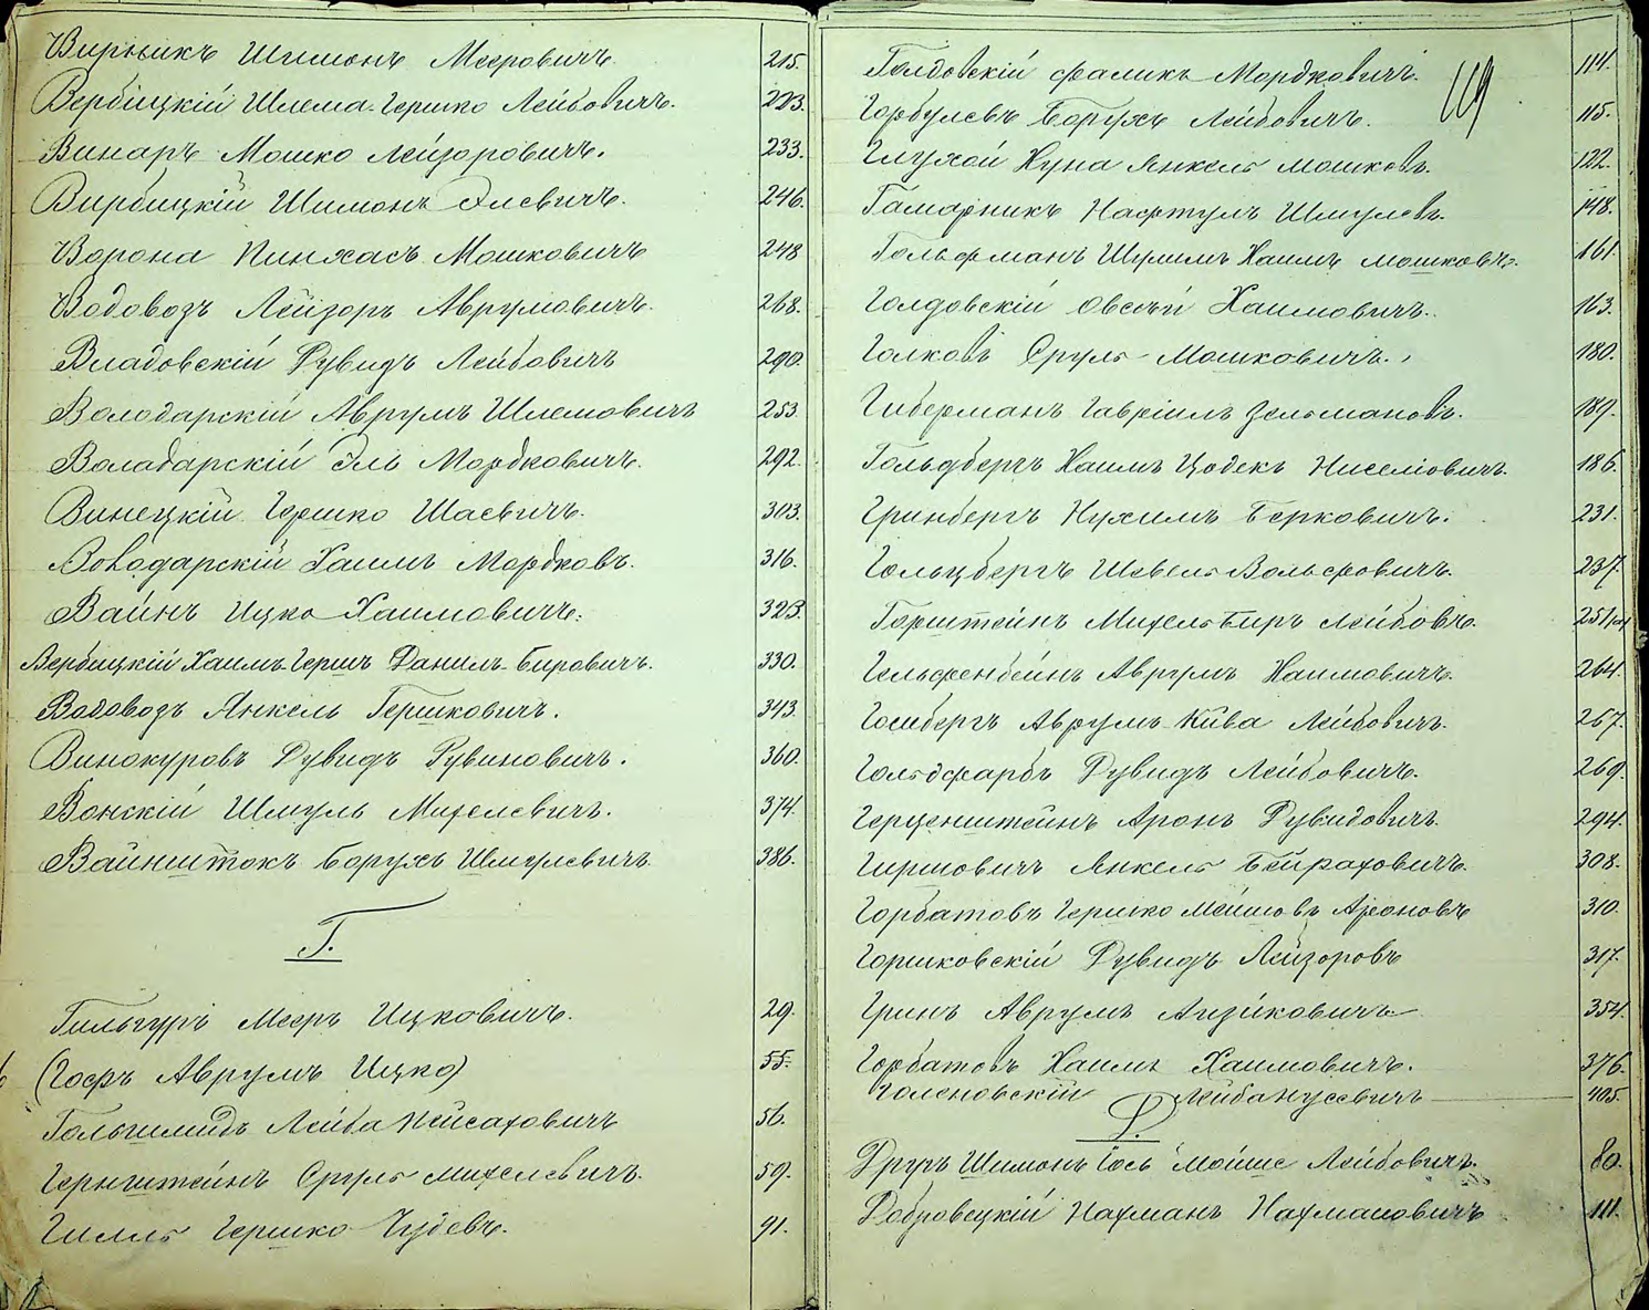 Вирникъ Шимонъ Мееровичъ 215.
Вербіцкій Шлема-Гершко Лейбовичъ. 223.
Винаръ Мошко Лейзоровичъ. 233.
Вирбицкій Шимонъ Элевичъ. 246.
Ворона Пинхасъ Мошковичъ 248
Водовозъ Лейзоръ Аврумовичъ. 268.
Владовскій Дувидъ Лейбовичъ 290.
Володарскій Аврумъ Шлемовичъ 253.
Воладарскій Эль Мордковичъ. 292.
Винецкій Гершко Шаевичъ. 303.
Володарскій Хаимъ Мордковъ. 316.
Вайнъ Ицко Хаимовичъ. 323.
Вербицкій Хаимъ-Гершъ Данилъ-Бировичъ. 330.
Водовозъ Янкель Гершковичъ. 343.
Винокуровъ Дувидъ Рувиновичъ. 360.
Вонскій Шмуль Михелевичъ. 374.
Вайнштокъ Борухъ Шмулевичъ 386.
Г.
Мееръ Ицковичъ. 29.
(Гофъ Аврумъ Ицко) 55.
Гольдшмидъ Лейба Пейсаховичъ 56.
Гернштейнъ Сруль Михелевичъ. 59.
Гилль Гершко 91.
Голдовскій Фаликъ Мордковичъ. 114.
119
Горбулевъ Борухъ Лейбовичъ. 115.
Глухой Нуна Янкель Мошковъ. 122.
Гамарникъ Нафтулъ Шмулевъ. 148.
Гольфманъ Шулимъ Хаимъ Мошковъ. 161.
Голдовскій Овсей Хаимовичъ. 163.
Галковъ Сруль Мошковичъ. 180.
Гиберманъ Гавріилъ Зельмановъ. 189.
Гольдбергъ Хаимъ Цодекъ Ниселіовичъ. 186.
Гринбергъ Нухимъ Берковичъ. 231.
Гольцбергъ Шевель Вольфовичъ. 237.
Горштейнъ Михель Биръ Лейбовъ. 251
Гельфенбейнъ Аврумъ Хаимовичъ. 264.
Аврумъ-Кива Лейбовичъ. 267.
Гольдфарбъ Дувидъ Лейбовичъ. 269.
Герценштейнъ Аронъ Дувидовичъ. 294.
Гиршовичъ Янкель Бейраховичъ. 308.
Горбатовъ Гершко Мейшовъ Ароновъ 310.
Горшковскій Дувидъ Лейзоровъ 317.
Гринъ Аврумъ Айзиковичъ 354.
Горбатовъ Хаимъ Хаимовичъ. 376.
Голеновскій Лейба Нусевичъ 405.
Д.
Друръ Шимонъ Іось Мойше Лейбовичъ. 80.
Добровецкій Нахманъ Нахмановичъ 111.